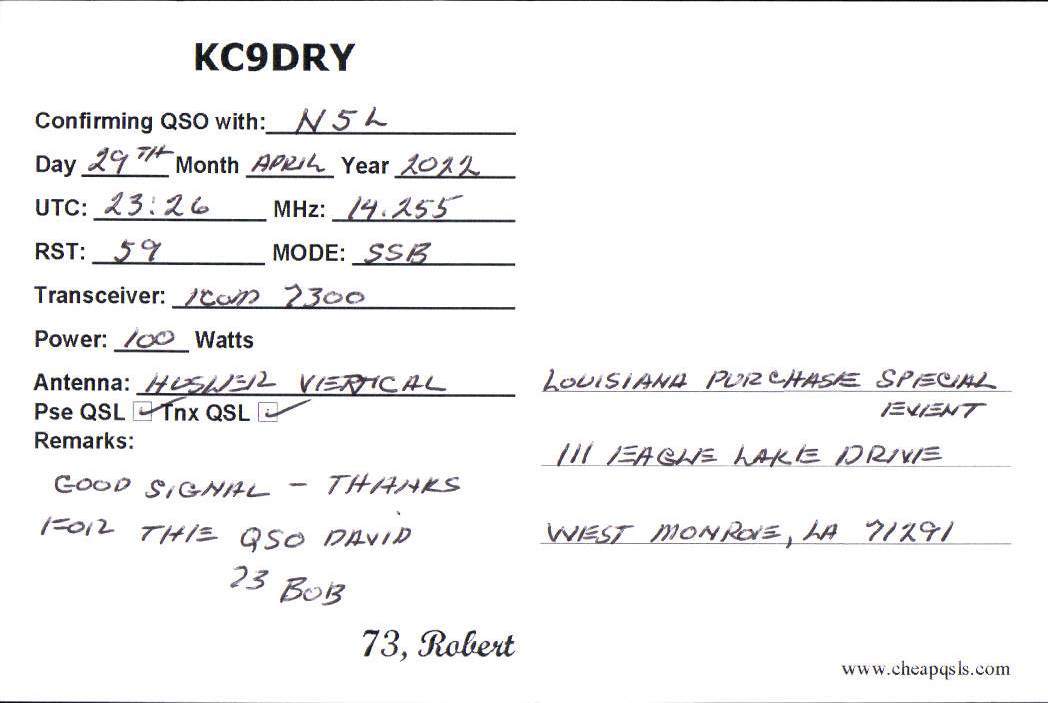 KC9DRY
Confirming QSO with: N5L
Day 29TH Month APRIL Year 2022
UTC: 23:26 MHz: 14.255
RST: 59 MODE: SSB
Transceiver: ICOM 7300
Power: 100 Watts
Antenna: HUSTLER VERTICAL
Pse QSL Tnx QSL
Remarks:
GOOD SIGNAL - THANKS
FOR THE QSO DAVID
73 BOB
73, Robert
LOUISIANA PURCHASE SPECIAL
EVENT
111 EAGLE LAKE DRIVE
WEST MONROE, LA 71291
www.cheapqsls.com